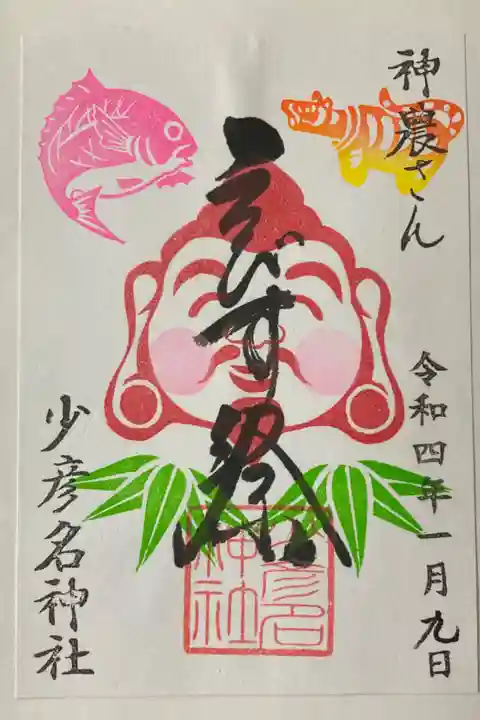 神農さん
令和四年一月九日
えびす祭
少彦名神社
少彦名
神社